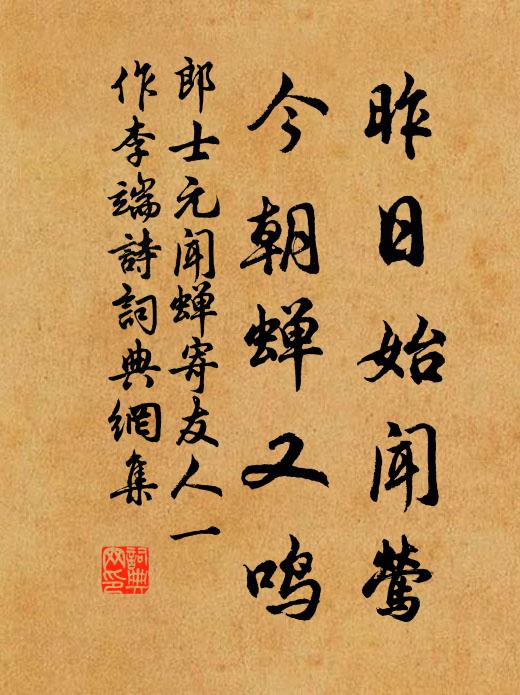 昨日始闻莺
今朝蝉又鸣
郎士元闻蝉寄友人一
作李端詩詞典網集
詞典
网印